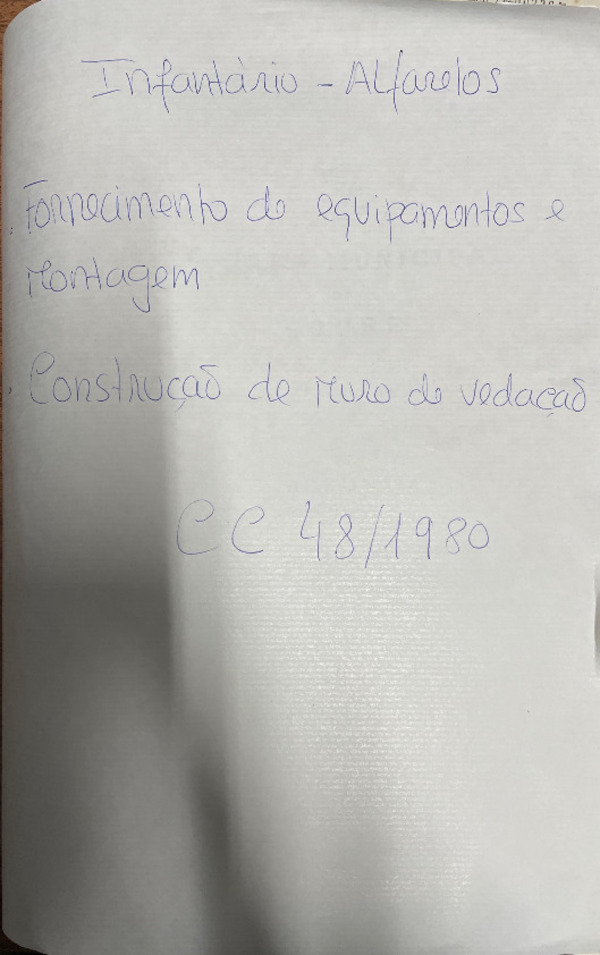 Infantário - Alfarelos
. Fornecimento de equipamentos e
Montagem
. Construção de Muro de vedação
CC 48/1980